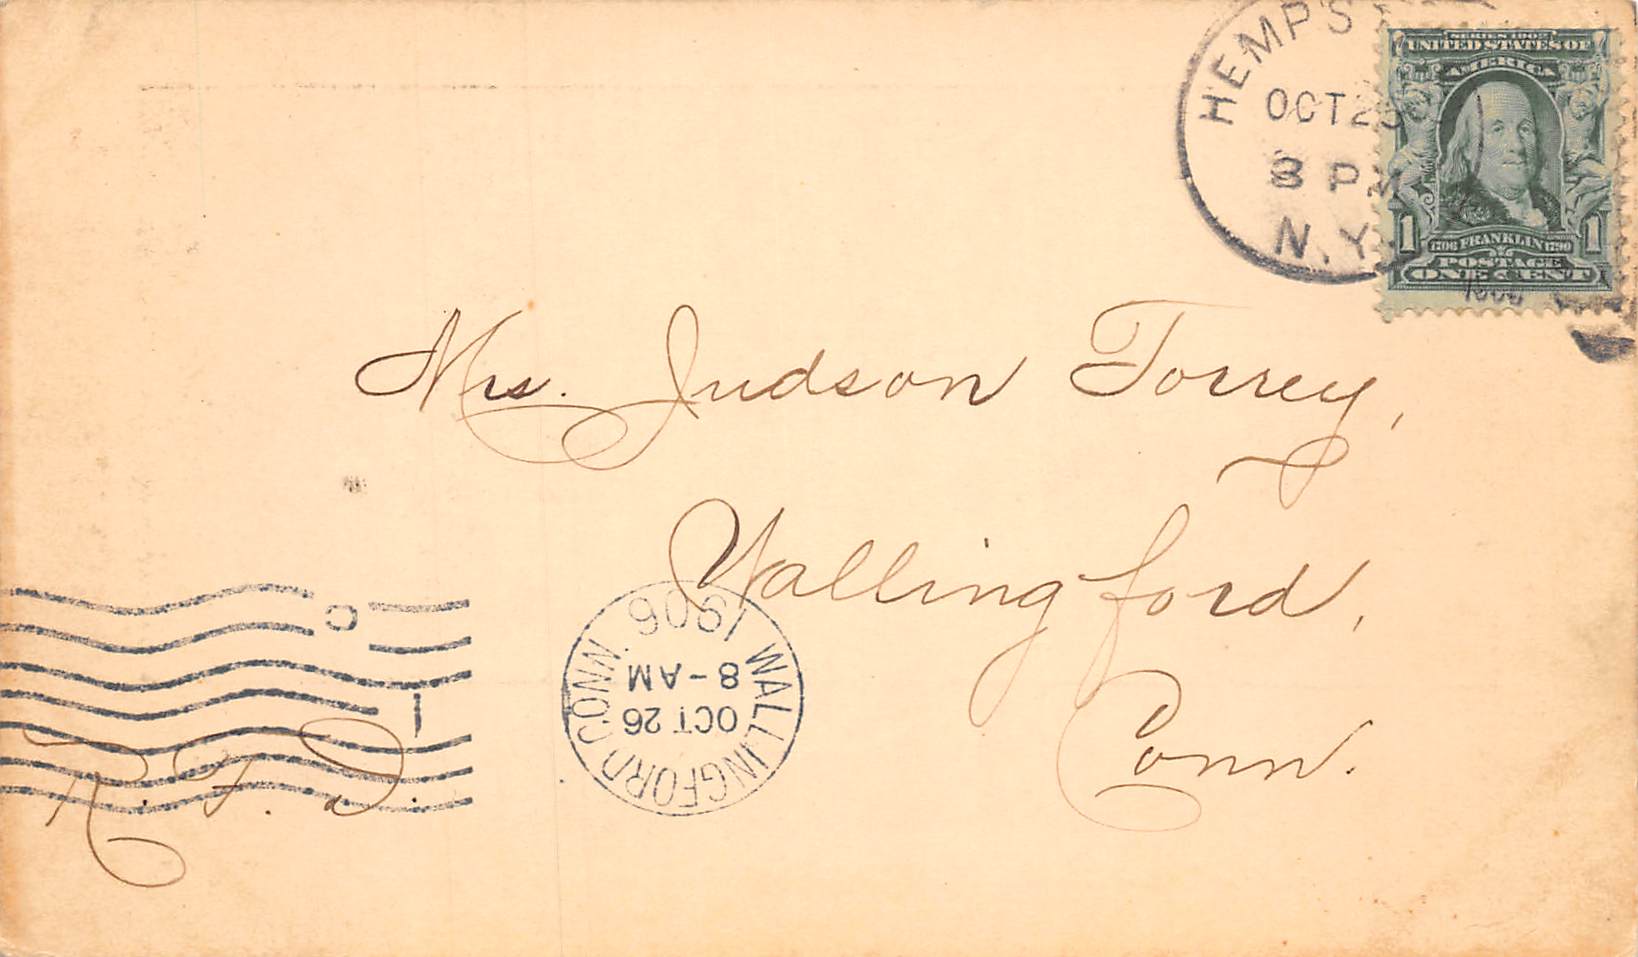 HEMPS
OCT 25
8 PM
N.Y.
SERIES 1902
UNITED STATES OF
AMERICA
1 1706 FRANKLIN 1790 1
POSTAGE
ONE CENT
Mrs. Judson Torrey,
Wallingford,
Conn.
R. F. D.
WALLINGFORD CONN. 1906
OCT 26
8-AM